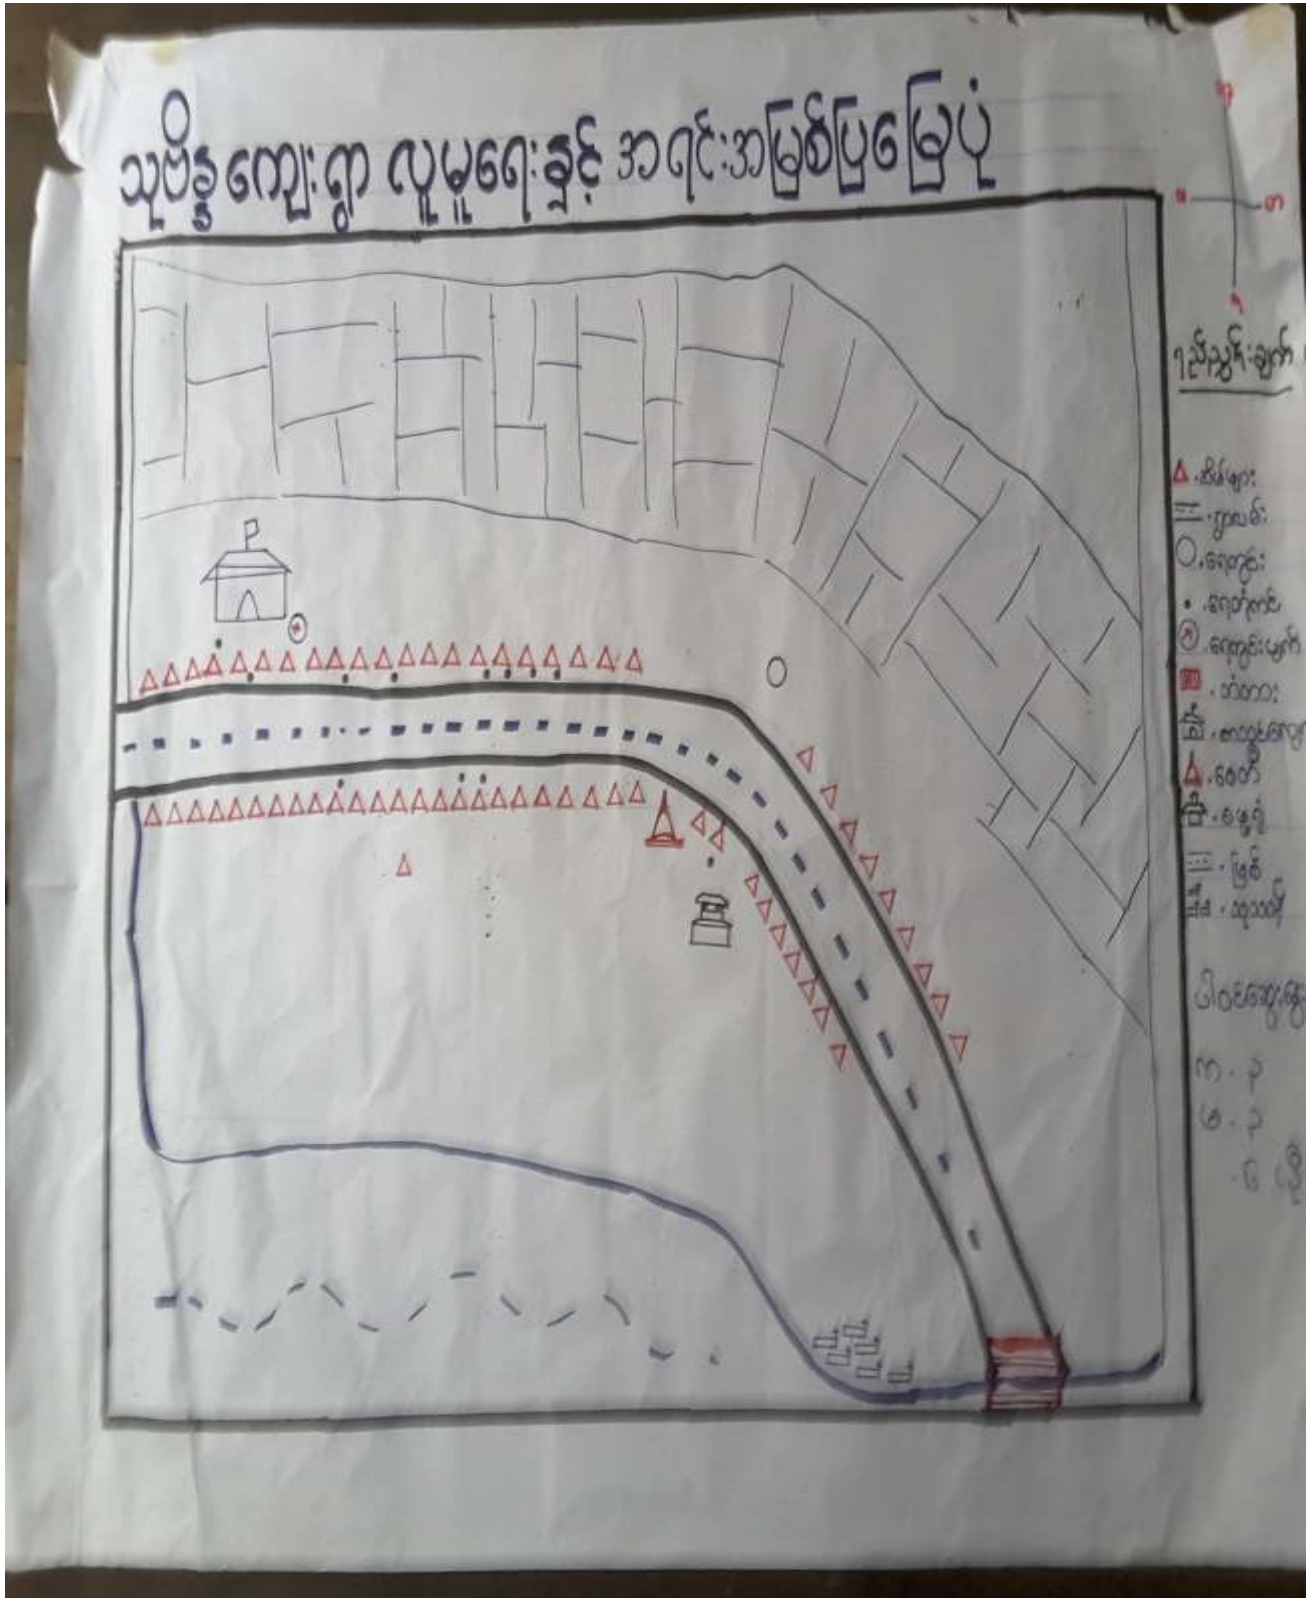 သုဗိန္ဒ ကျေးရွာ လူမှုရေးနှင့် အရင်းအမြစ်ပြမြေပုံ
အ
တ
ရည်ညွှန်းချက်
အိမ်များ
ရွာလမ်း
ရေတွင်း
ရေတုံကင်
ရေတွင်းပျက်
တံတား
စေတီ
မြစ်
သုသာန်
ပါဝင်ဆွေးနွေး
က - ၃
မ - ၃